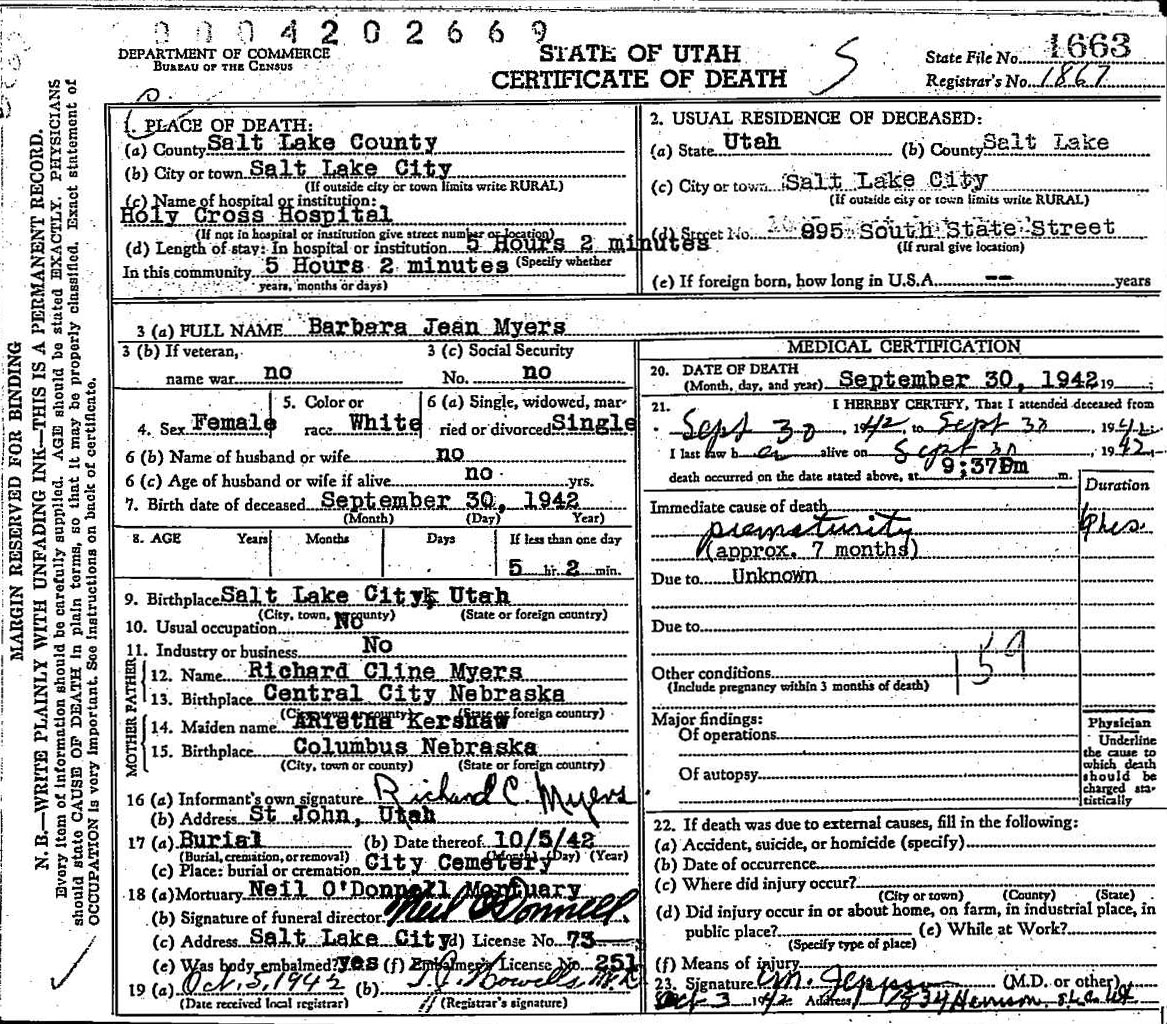 0 0 0 4 2 0 2 6 6 9
DEPARTMENT OF COMMERCE
BUREAU OF THE CENSUS
STATE OF UTAH
CERTIFICATE OF DEATH
S
State File No. 1663
Registrar's No. 1867
MARGIN RESERVED FOR BINDING
N. B.—WRITE PLAINLY WITH UNFADING INK—THIS IS A PERMANENT RECORD.
Every item of information should be carefully supplied. AGE should be stated EXACTLY. PHYSICIANS
should state CAUSE OF DEATH in plain terms, so that it may be properly classified. Exact statement of
OCCUPATION is very important. See instructions on back of certificate.
1. PLACE OF DEATH:
(a) County Salt Lake County
(b) City or town Salt Lake City
(If outside city or town limits write RURAL)
(c) Name of hospital or institution:
Holy Cross Hospital
(If not in hospital or institution give street number or location)
(d) Length of stay: In hospital or institution 5 Hours 2 minutes
In this community 5 Hours 2 minutes (Specify whether
years, months or days)
2. USUAL RESIDENCE OF DECEASED:
(a) State Utah (b) County Salt Lake
(c) City or town Salt Lake City
(If outside city or town limits write RURAL)
(d) Street No. 995 South State Street
(If rural give location)
(e) If foreign born, how long in U.S.A. -- years
3 (a) FULL NAME Barbara Jean Myers
3 (b) If veteran, 3 (c) Social Security
name war no No. no
4. Sex Female 5. Color or race White 6 (a) Single, widowed, married or divorced Single
6 (b) Name of husband or wife no
6 (c) Age of husband or wife if alive no yrs.
7. Birth date of deceased September 30, 1942
(Month) (Day) Year)
8. AGE Years Months Days If less than one day
5 hr. 2 min.
9. Birthplace Salt Lake City Utah
(City, town, or county) (State or foreign country)
10. Usual occupation No
11. Industry or business No
FATHER
12. Name Richard Cline Myers
13. Birthplace Central City Nebraska
(City, town or county) (State or foreign country)
MOTHER
14. Maiden name ARletha Kershaw
15. Birthplace Columbus Nebraska
(City, town or county) (State or foreign country)
16 (a) Informant's own signature Richard C. Myers
(b) Address St John, Utah
17 (a) Burial (b) Date thereof 10/5/42
(Burial, cremation, or removal) (Month) (Day) (Year)
(c) Place: burial or cremation City Cemetery
18 (a) Mortuary Neil O'Donnell Mortuary
(b) Signature of funeral director Neil O'Donnell
(c) Address Salt Lake City (d) License No. 73
(e) Was body embalmed? yes (f) Embalmer's License No. 251
19 (a) Oct. 5, 1942 (b)
(Date received local registrar) (Registrar's signature)
MEDICAL CERTIFICATION
20. DATE OF DEATH
(Month, day, and year) September 30, 1942 19
21. I HEREBY CERTIFY, That I attended deceased from
Sept 30 1942, to Sept 30 1942
I last saw her alive on Sept 30 1942
death occurred on the date stated above, at 9:37Pm m.
Duration
Immediate cause of death
prematurity
(approx. 7 months)
Due to Unknown
Due to
Other conditions 159
(Include pregnancy within 3 months of death)
Major findings:
Of operations
Of autopsy
Physician
Underline
the cause to
which death
should be
charged sta-
tistically
22. If death was due to external causes, fill in the following:
(a) Accident, suicide, or homicide (specify)
(b) Date of occurrence
(c) Where did injury occur?
(City or town) (County) (State)
(d) Did injury occur in or about home, on farm, in industrial place, in
public place? (e) While at Work?
(Specify type of place)
(f) Means of injury
23. Signature (M.D. or other)
Oct 3 1942 Address